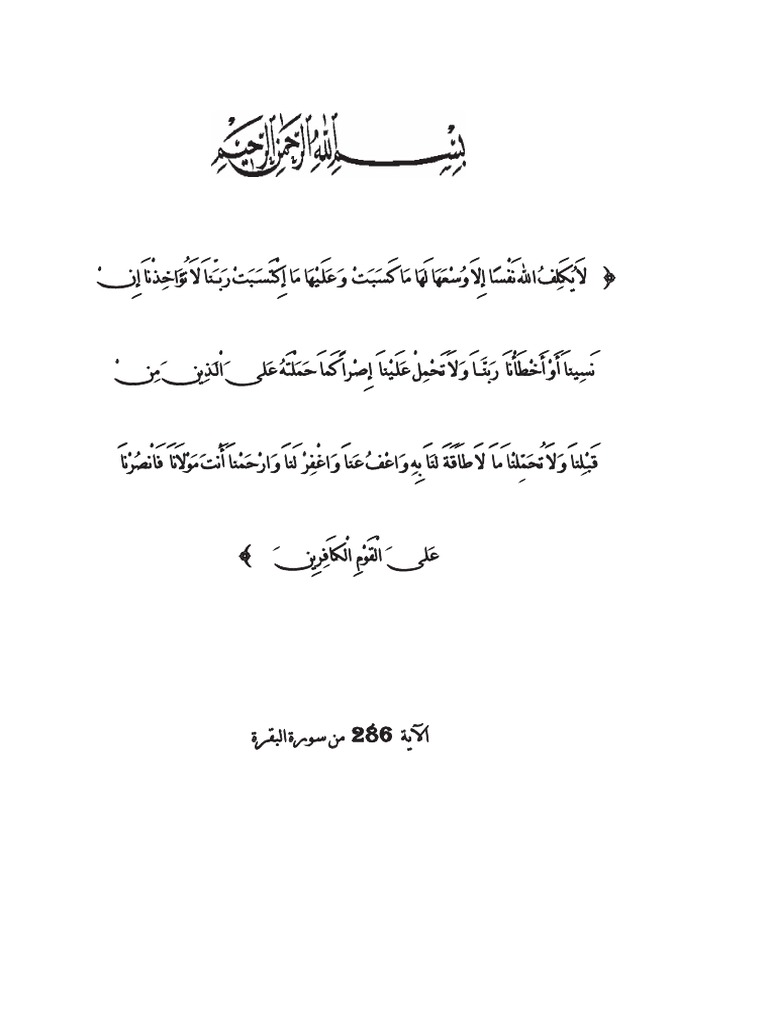 بِسْمِ اللهِ الرَّحْمٰنِ الرَّحِيْمِ
﴿ لَا يُكَلِفُ الله نَفْسًا إِلَا وُسْعَهَا لَهَا مَا كَسَبَتْ وَعَلَيْهَا مَا إِكْتَسَبَتْ رَبَّنَا لَا تُؤَاخِذْنَا إِنْ
نَسِينَا أَوْ أَخْطَأْنَا رَبَنَّا وَلَا تَحْمِلْ عَلَيْنَا إِصْرًا كَمَا حَمَلْتَهُ عَلَى الَّذِينَ مِنْ
قَبْلِنَا وَلَا تُحَمِّلْنَا مَا لَا طَاقَةَ لَنَا بِهِ وَاعْفُ عَنَا وَاغْفِرْ لَنَا وَارْحَمْنَا أَنْتَ مَوْلَانَا فَانْصُرْنَا
عَلَى الْقَوْمِ الْكَافِرِينَ ﴾
الآية 286 من سورة البقرة